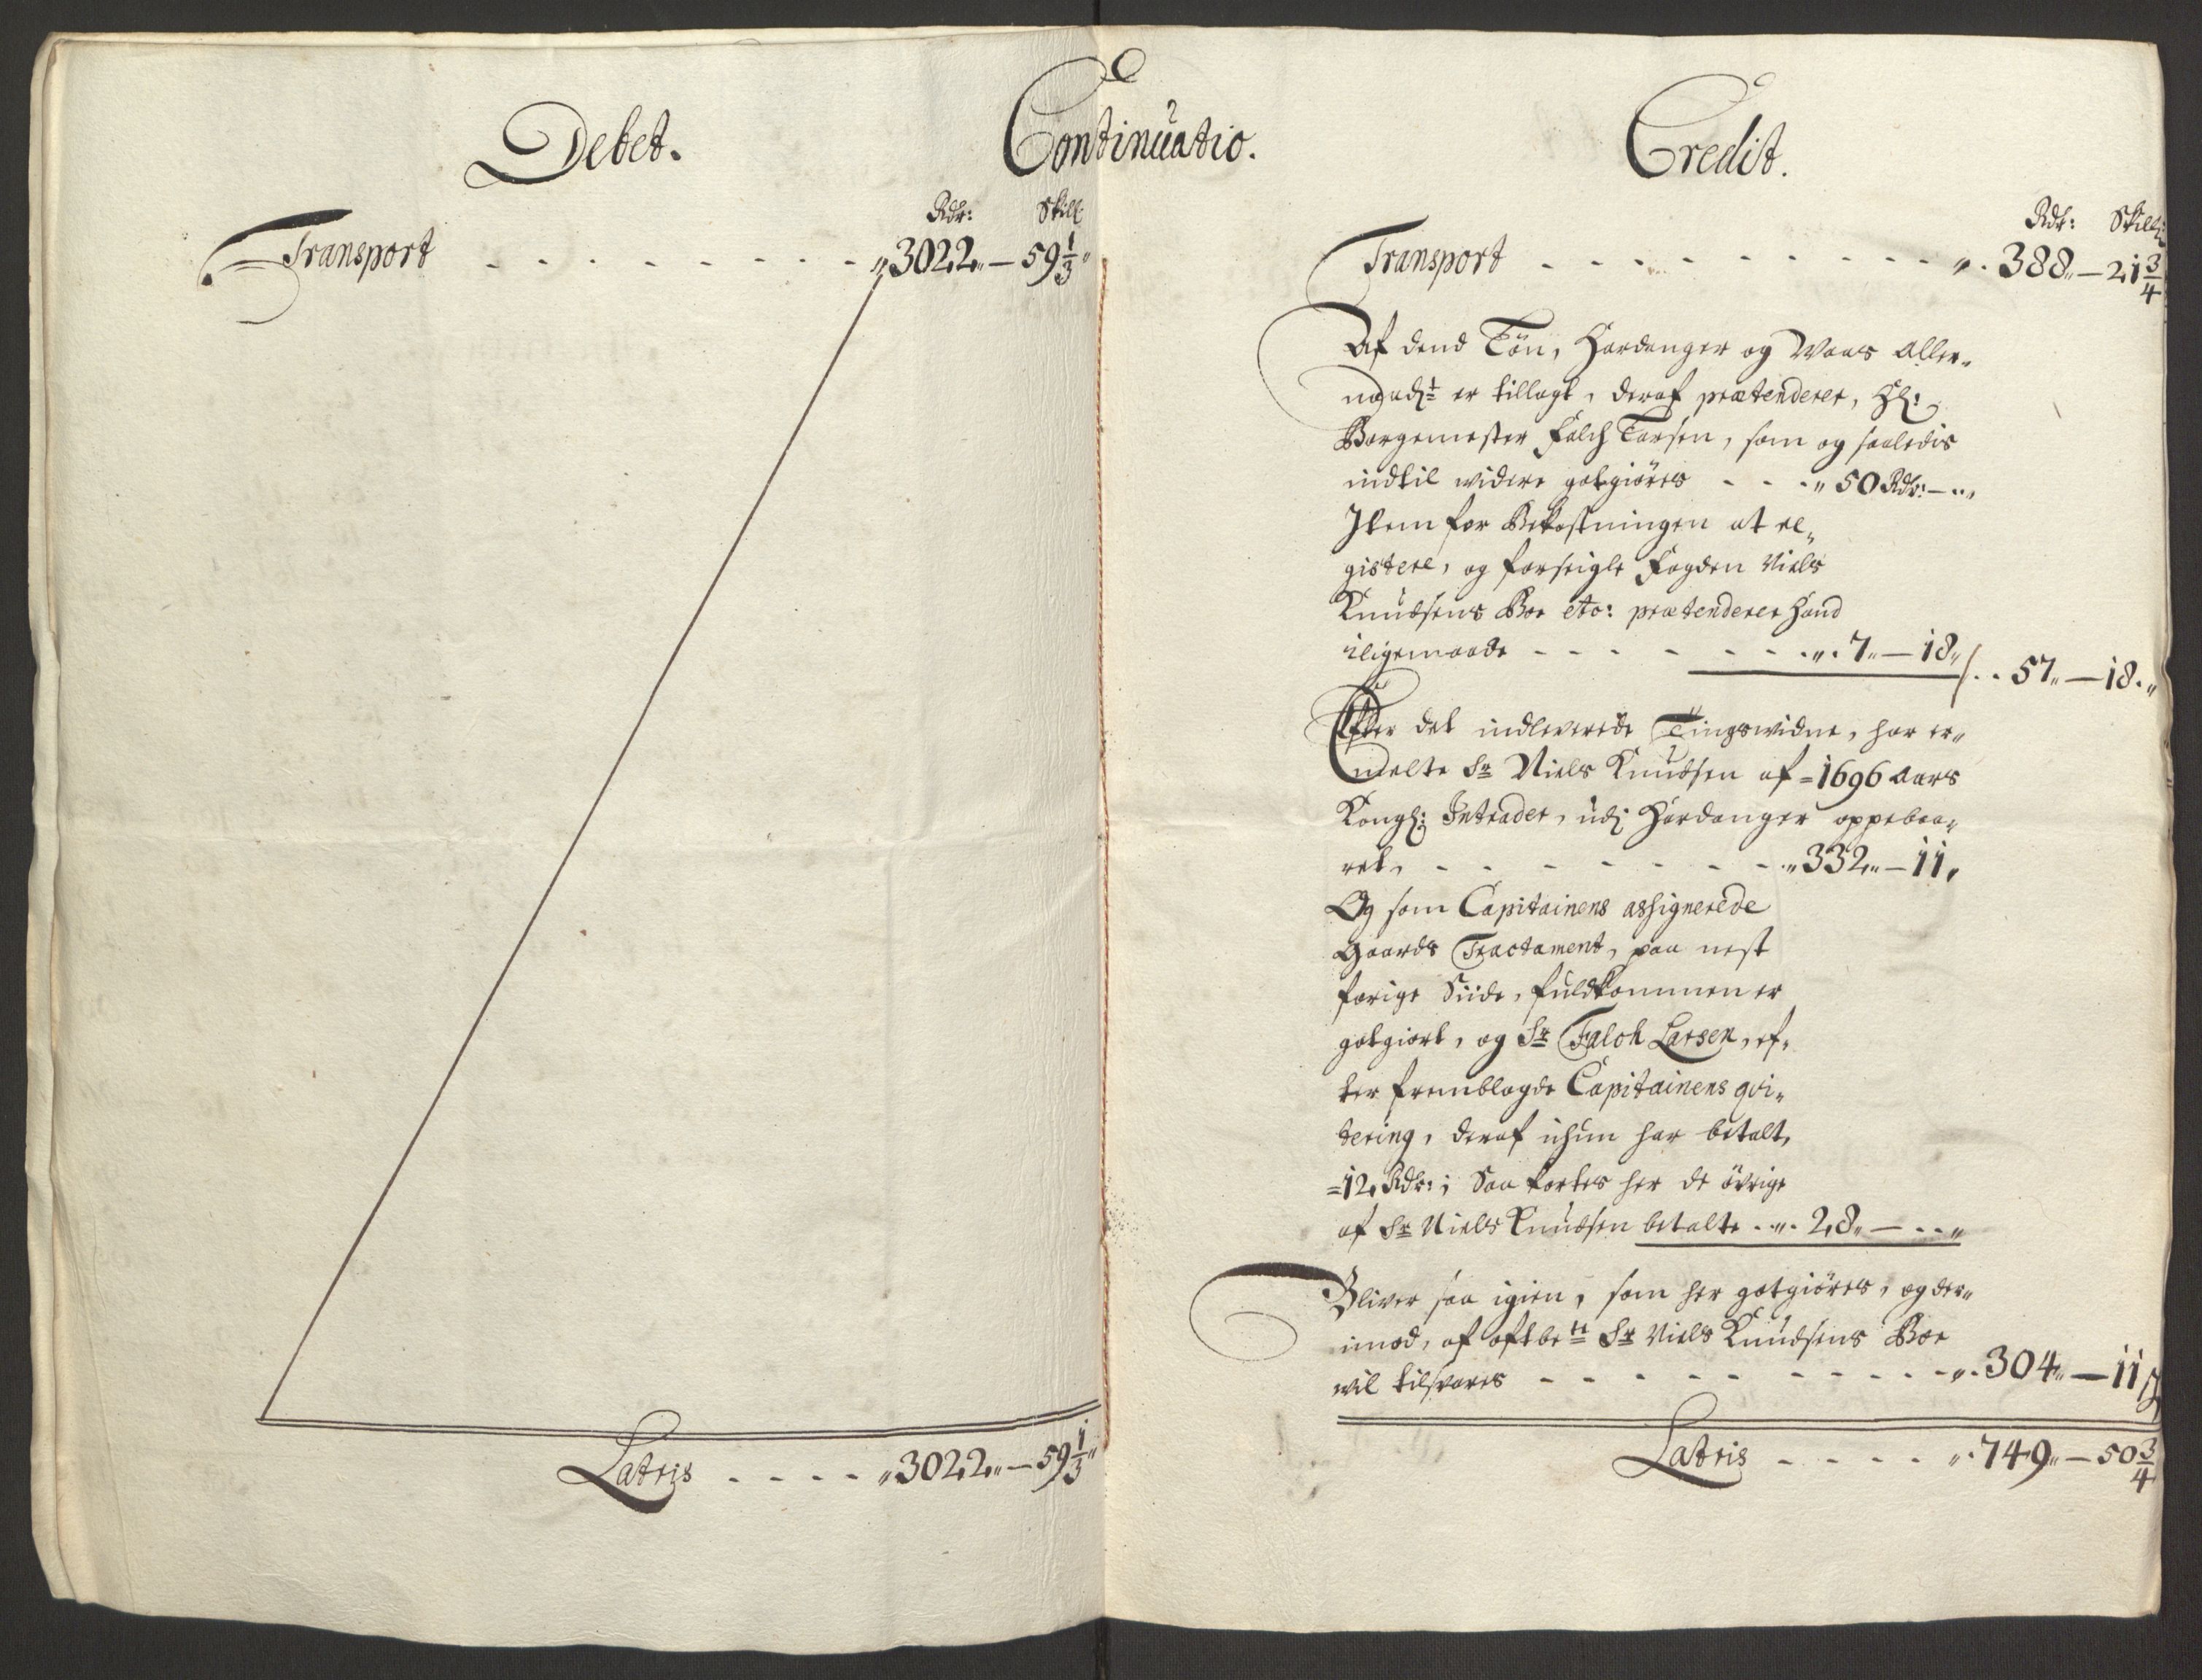 Debet.
Continuatio.
Rdr: Skill
Transport - - - - - - - - „3022„ — 59 1/3„
Latris - - - - „3022„ — 59 1/3„
Credit.
Rdr: Skill:
Transport - - - - - - - - - - „. 388„ — 21 3/4
Af dend Løn, Hardanger og Waas aller„
naadt er tillagt, deraf prætenderer, Hr:
Borgemester Falch Larsen, som og saaledis
indtil widere gotgiøres - - - „ 50 Rdr: — „
Item for Bekostningen at re„
gistere, og forseigle Fogden Niels
Knudsens Boe etc: prætenderer Hand
iligemaade - - - - - - - „. 7„ — 18„ /. . 57„ — 18. „
Efter det indleverede Tingswidne, har er„
melte Sr Niels Knudsen af = 1696 Aars
Kongl: Intrader, udj Hardanger oppebaa„
ret, - - - - - - - - „332„ — 11„
Og som Capitainens assignerede
Gaards Tractament, paa nest
forige Siide, fuldkommen er
gotgiort, og Sr Falch Larsen, ef„
ter fremblagde Capitainens qvi„
tering, deraf ichun har betalt,
=12 Rdr:; Saa kortes her de øvrige
af Sr Niels Knudsen betalte . „. 28„ — - - „
Bliver saa igien, som her gotgiøres, og der„
imod, af oftbete Sr Niels Knudsens Boe
wil tilsvares - - - - - - - - - „. 304„ — 11„
Latris - - - - „. 749„ — 50 3/4